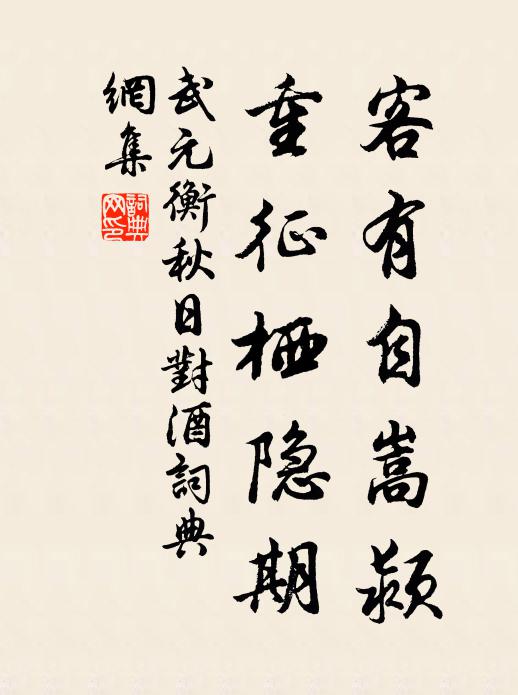 客有自嵩颍
重征栖隐期
武元衡秋日對酒詞典
網集
詞典网印